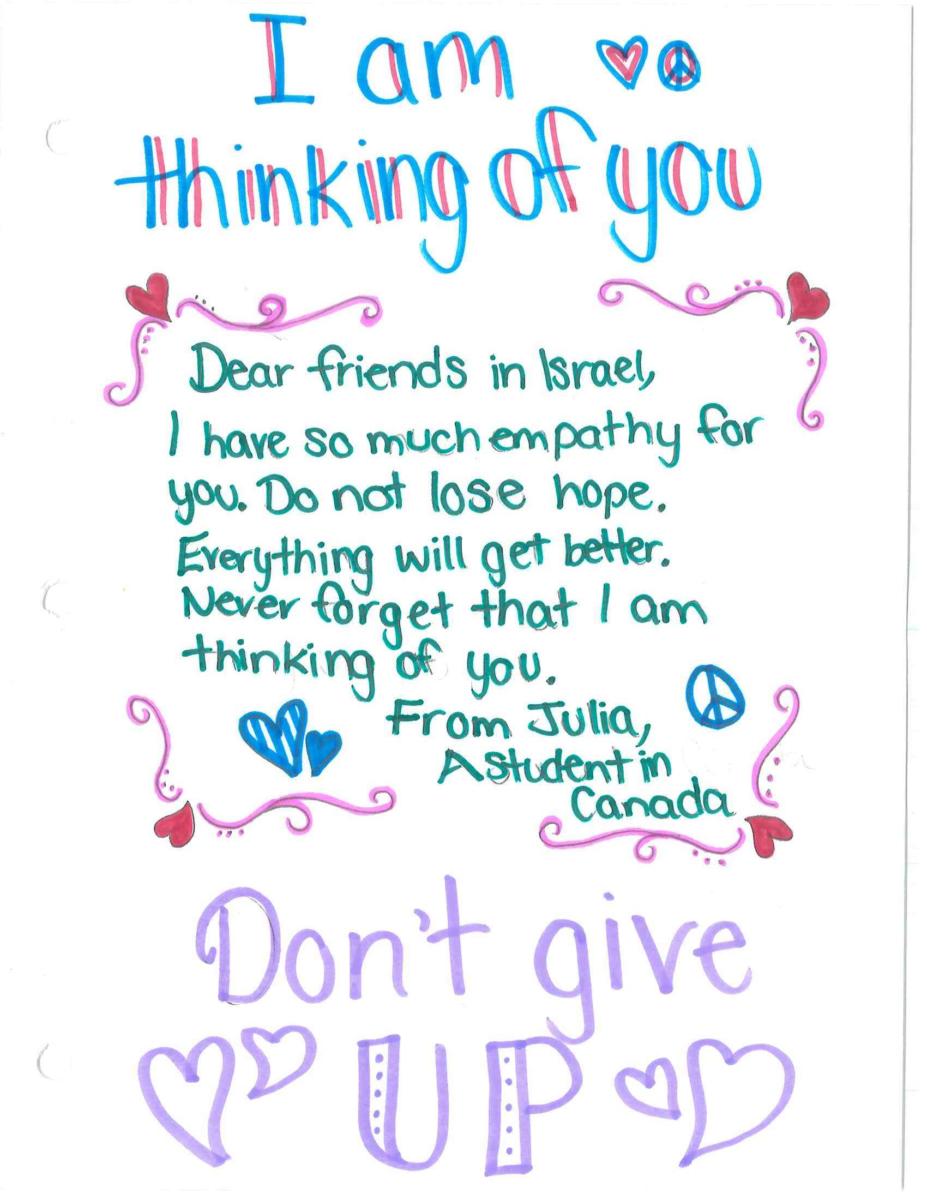 I am
thinking of you
Dear friends in Israel,
I have so much empathy for
you. Do not lose hope.
Everything will get better.
Never forget that I am
thinking of you.
From Julia,
A student in
Canada
Don't give
UP